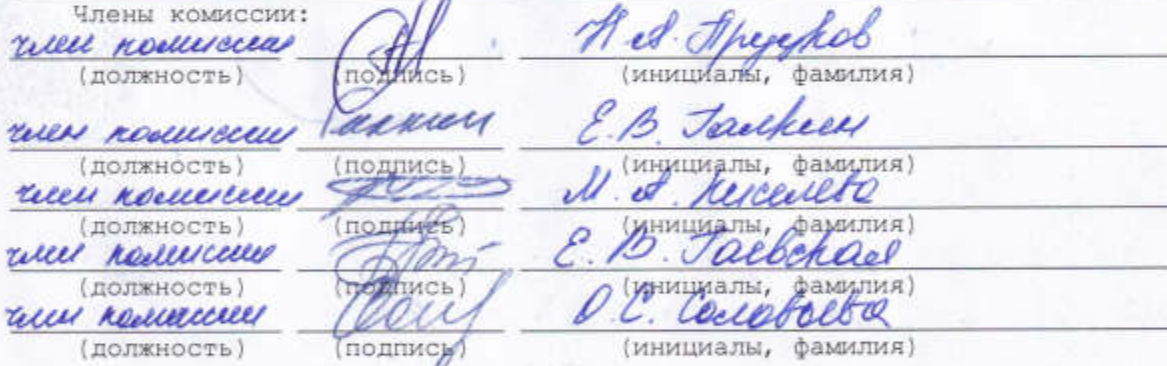 Члены комиссии:
член комиссии Н.А. Прудков
(должность) (подпись) (инициалы, фамилия)
член комиссии Галкин Е.В. Галкин
(должность) (подпись) (инициалы, фамилия)
член комиссии М.А. Киселева
(должность) (подпись) (инициалы, фамилия)
член комиссии Е.В. Гаевская
(должность) (подпись) (инициалы, фамилия)
член комиссии О.С. Соловьева
(должность) (подпись) (инициалы, фамилия)